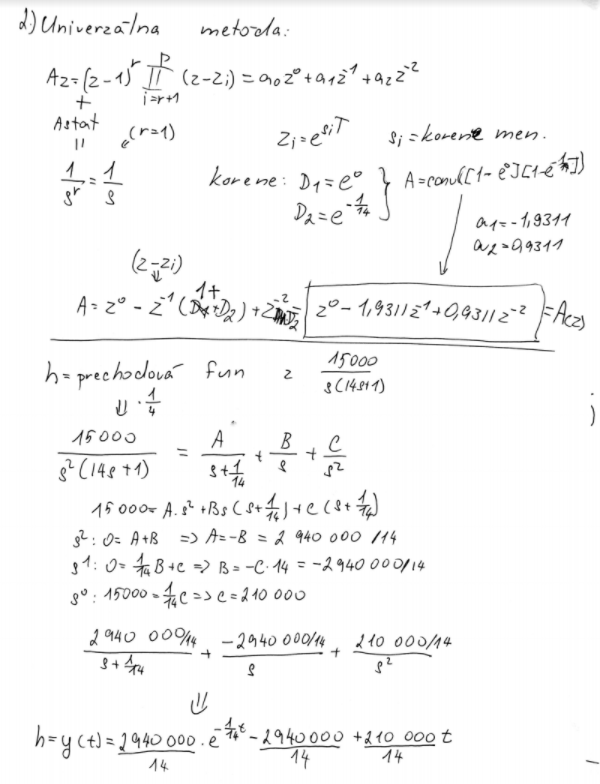 2.) Univerzálna metóda:
Az = (z-1)^r ∏_{i=r+1}^{p} (z-zi) = a0z^0 + a1z^-1 + a2z^-2
+
Astat (r=1) zi = e^{siT} si = korene men.
=
1/s^r = 1/s korene: D1 = e^0 } A = conv([1-e^0][1-e^{-1/14}])
D2 = e^{-1/14}
a1 = -1,9311
a2 = 0,9311
(z-zi)
⇓
A = z^0 - z^-1 (1+D2) + z^-2 D2 = z^0 - 1,9311z^-1 + 0,9311z^-2 = A(z)
h = prechodová fun z 15000/s(14s+1)
⇓ · 1/4
15000/s^2(14s+1) = A/(s+1/14) + B/s + C/s^2
15000 = A.s^2 + Bs(s+1/14) + C(s+1/14)
s^2: 0 = A+B => A = -B = 2 940 000 /14
s^1: 0 = 1/14 B + C => B = -C·14 = -2940 000/14
s^0: 15000 = 1/14 C => C = 210 000
2940 000/14 / (s+1/14) + -2940 000/14 / s + 210 000/14 / s^2
⇓
h = y(t) = 2940 000/14 . e^{-1/14 t} - 2940 000/14 + 210 000/14 t